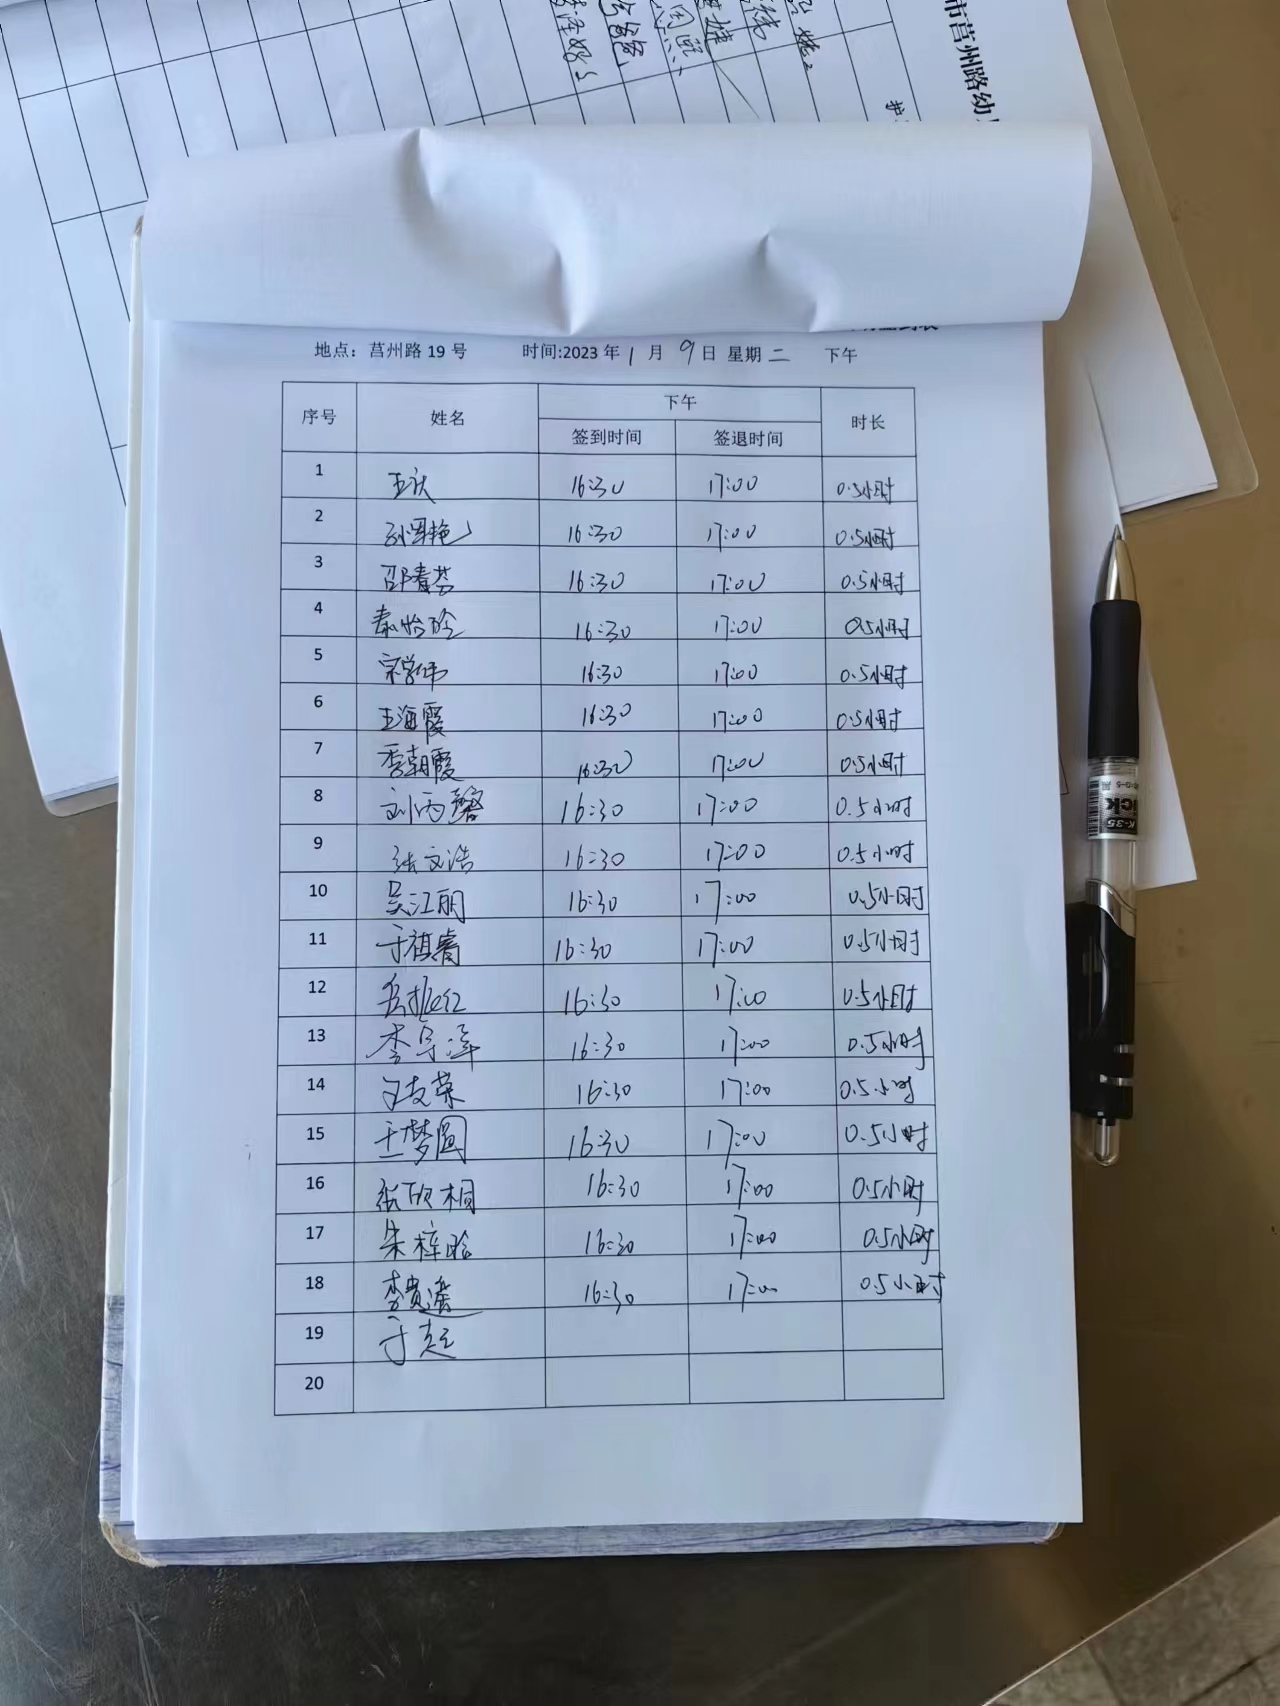 市莒州路幼
地点：莒州路 19 号 时间:2023 年 1 月 9 日 星期 二 下午
序号 姓名 下午 时长
签到时间 签退时间
1 16:30 17:00 0.5小时
2 孙军艳 16:30 17:00 0.5小时
3 邵春芬 16:30 17:00 0.5小时
4 秦怡玲 16:30 17:00 0.5小时
5 宋学伟 16:30 17:00 0.5小时
6 王海霞 16:30 17:00 0.5小时
7 李朝霞 16:30 17:00 0.5小时
8 刘丙馨 16:30 17:00 0.5小时
9 张文浩 16:30 17:00 0.5小时
10 吴江丽 16:30 17:00 0.5小时
11 于祺睿 16:30 17:00 0.5小时
12 16:30 17:00 0.5小时
13 16:30 17:00 0.5小时
14 16:30 17:00 0.5小时
15 王梦圆 16:30 17:00 0.5小时
16 张欣桐 16:30 17:00 0.5小时
17 朱梓晗 16:30 17:00 0.5小时
18 李贵遥 16:30 17:00 0.5小时
19
20
K-35